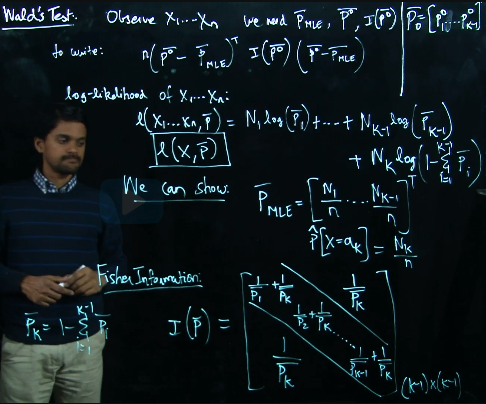 Wald's Test. Observe X₁...Xₙ we need P̄_MLE, P̄⁰, I(P̄⁰) | P̄₀ = [P₁⁰, ... P⁰_{K-1}]
to write: n(P̄⁰ - P̄_MLE)ᵀ I(P̄⁰) (P̄⁰ - P̄_MLE)
log-likelihood of X₁...Xₙ:
l(X₁...Xₙ, P̄) = N₁ log(P̄₁) + ... + N_{K-1} log(P̄_{K-1})
+ N_K log(1 - Σ_{i=1}^{K-1} P̄ᵢ)
l(X, P̄)
We can show: P̄_MLE = [N₁/n ... N_{K-1}/n]ᵀ
P̂[X = a_K] = N_K/n
Fisher Information:
P̄_K = 1 - Σ_{i=1}^{K-1} P̄ᵢ
I(P̄) = [
1/P₁ + 1/P_K 1/P_K
1/P₂ + 1/P_K
...
1/P_K 1/P_{K-1} + 1/P_K
] (K-1)×(K-1)